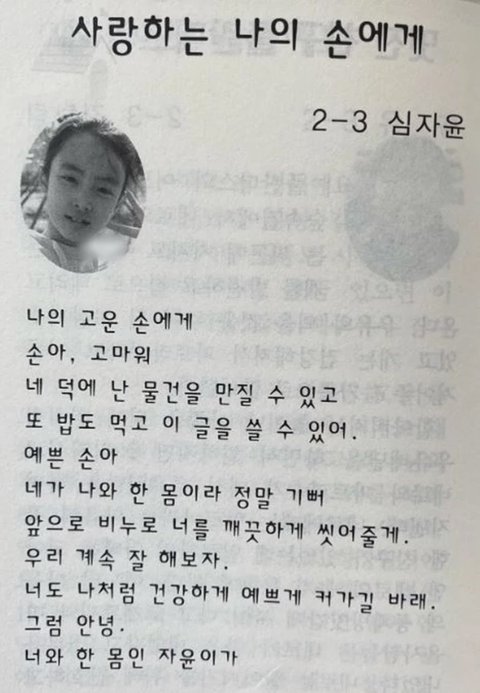 사랑하는 나의 손에게
2-3 심자윤
나의 고운 손에게
손아, 고마워
네 덕에 난 물건을 만질 수 있고
또 밥도 먹고 이 글을 쓸 수 있어.
예쁜 손아
네가 나와 한 몸이라 정말 기뻐
앞으로 비누로 너를 깨끗하게 씻어줄게.
우리 계속 잘 해보자.
너도 나처럼 건강하게 예쁘게 커가길 바래.
그럼 안녕.
너와 한 몸인 자윤이가